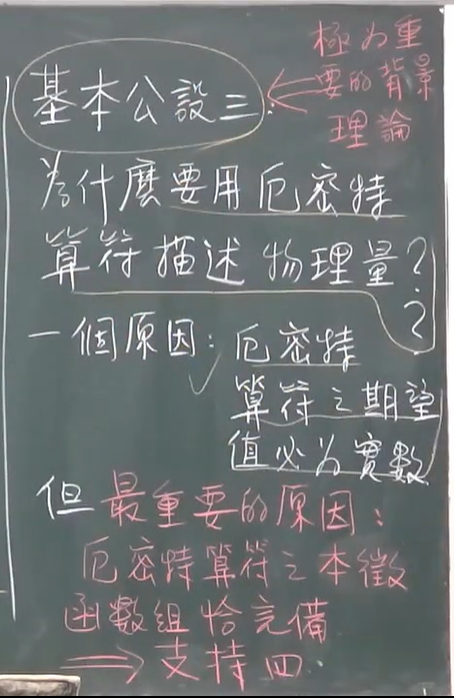 基本公設三:
極為重
要的背景
理論
為什麼要用厄密特
算符描述物理量?
?
一個原因:厄密特
算符之期望
值必為實數
但最重要的原因:
厄密特算符之本徵
函數組恰完備
⟹支持四